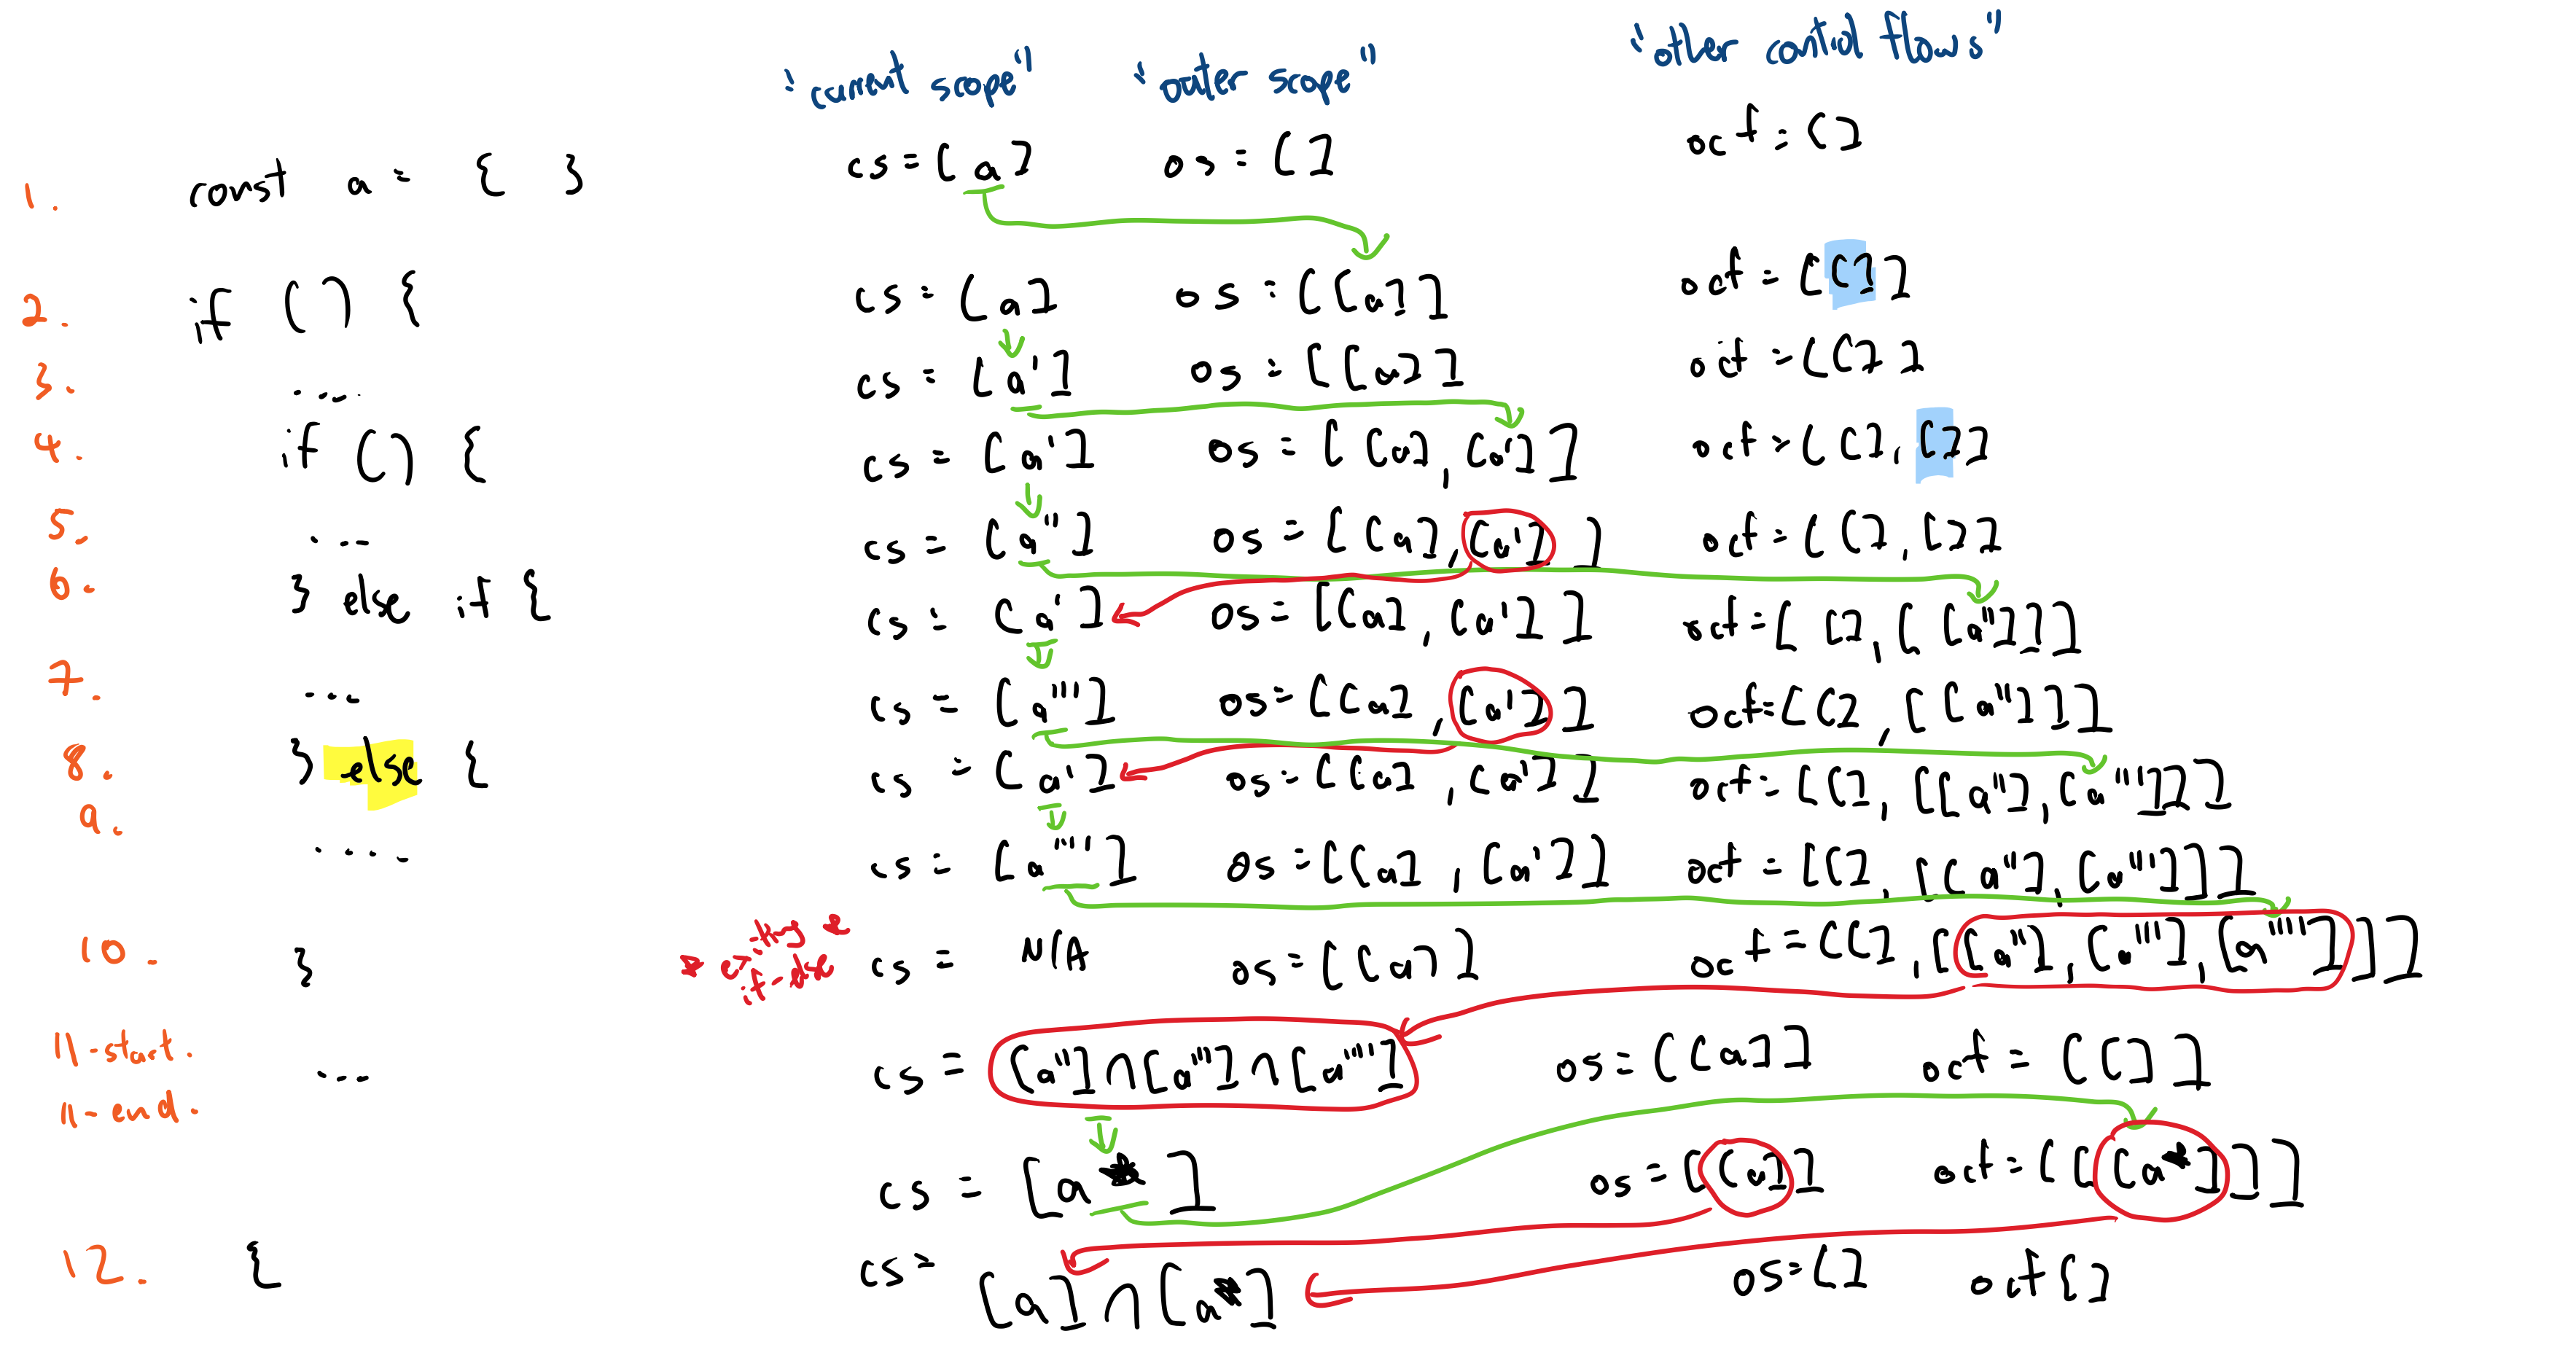 "current scope" "outer scope" "other control flows"
1. const a = { } cs = [a] os = [] ocf = []
2. if () { cs = [a] os = [[a]] ocf = [[]]
3. .... cs = [a'] os = [[a]] ocf = [[]]
4. if () { cs = [a'] os = [[a], [a']] ocf = [[], []]
5. ... cs = [a''] os = [[a], [a']] ocf = [[], []]
6. } else if { cs = [a'] os = [[a], [a']] ocf = [[], [[a'']]]
7. ... cs = [a'''] os = [[a], [a']] ocf = [[], [[a'']]]
8. } else { cs = [a'] os = [[a], [a']] ocf = [[], [[a''], [a''']]]
9. .... cs = [a''''] os = [[a], [a']] ocf = [[], [[a''], [a''']]]
10. } * exiting if-else cs = N/A os = [[a]] ocf = [[], [[a''], [a'''], [a'''']]]
11-start. ... cs = [a''] ∩ [a'''] ∩ [a''''] os = [[a]] ocf = [[]]
11-end. cs = [a*] os = [[a]] ocf = [[[a*]]]
12. { cs = [a] ∩ [a*] os = [] ocf []